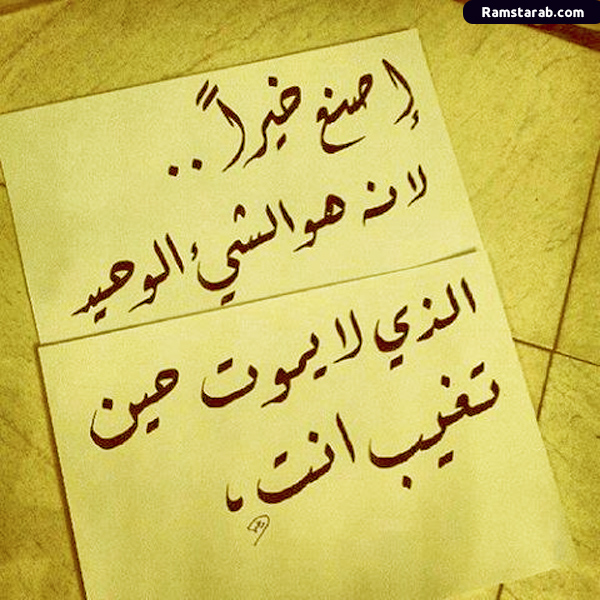 Ramstarab.com
إصنع خيراً..
لانه هو الشيء الوحيد
الذي لا يموت حين
تغيب انت،